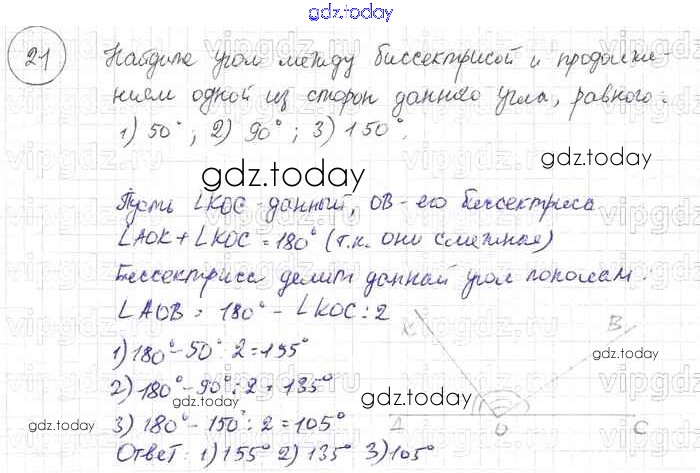 gdz.today
21
Найдите угол между биссектрисой и продолже-
нием одной из сторон данного угла, равного:
1) 50°; 2) 90°; 3) 150°.
gdz.today
gdz.today
Пусть ∠KOC - данный, OB - его биссектриса
∠AOK + ∠KOC = 180° (т.к. они смежные)
Биссектриса делит данный угол пополам.
∠AOB = 180° - ∠KOC : 2
1) 180° - 50° : 2 = 155°
2) 180° - 90° : 2 = 135°
3) 180° - 150° : 2 = 105°
Ответ: 1) 155° 2) 135° 3) 105°
K
B
A
O
C
gdz.today
gdz.today
gdz.today
vipgdz.ru